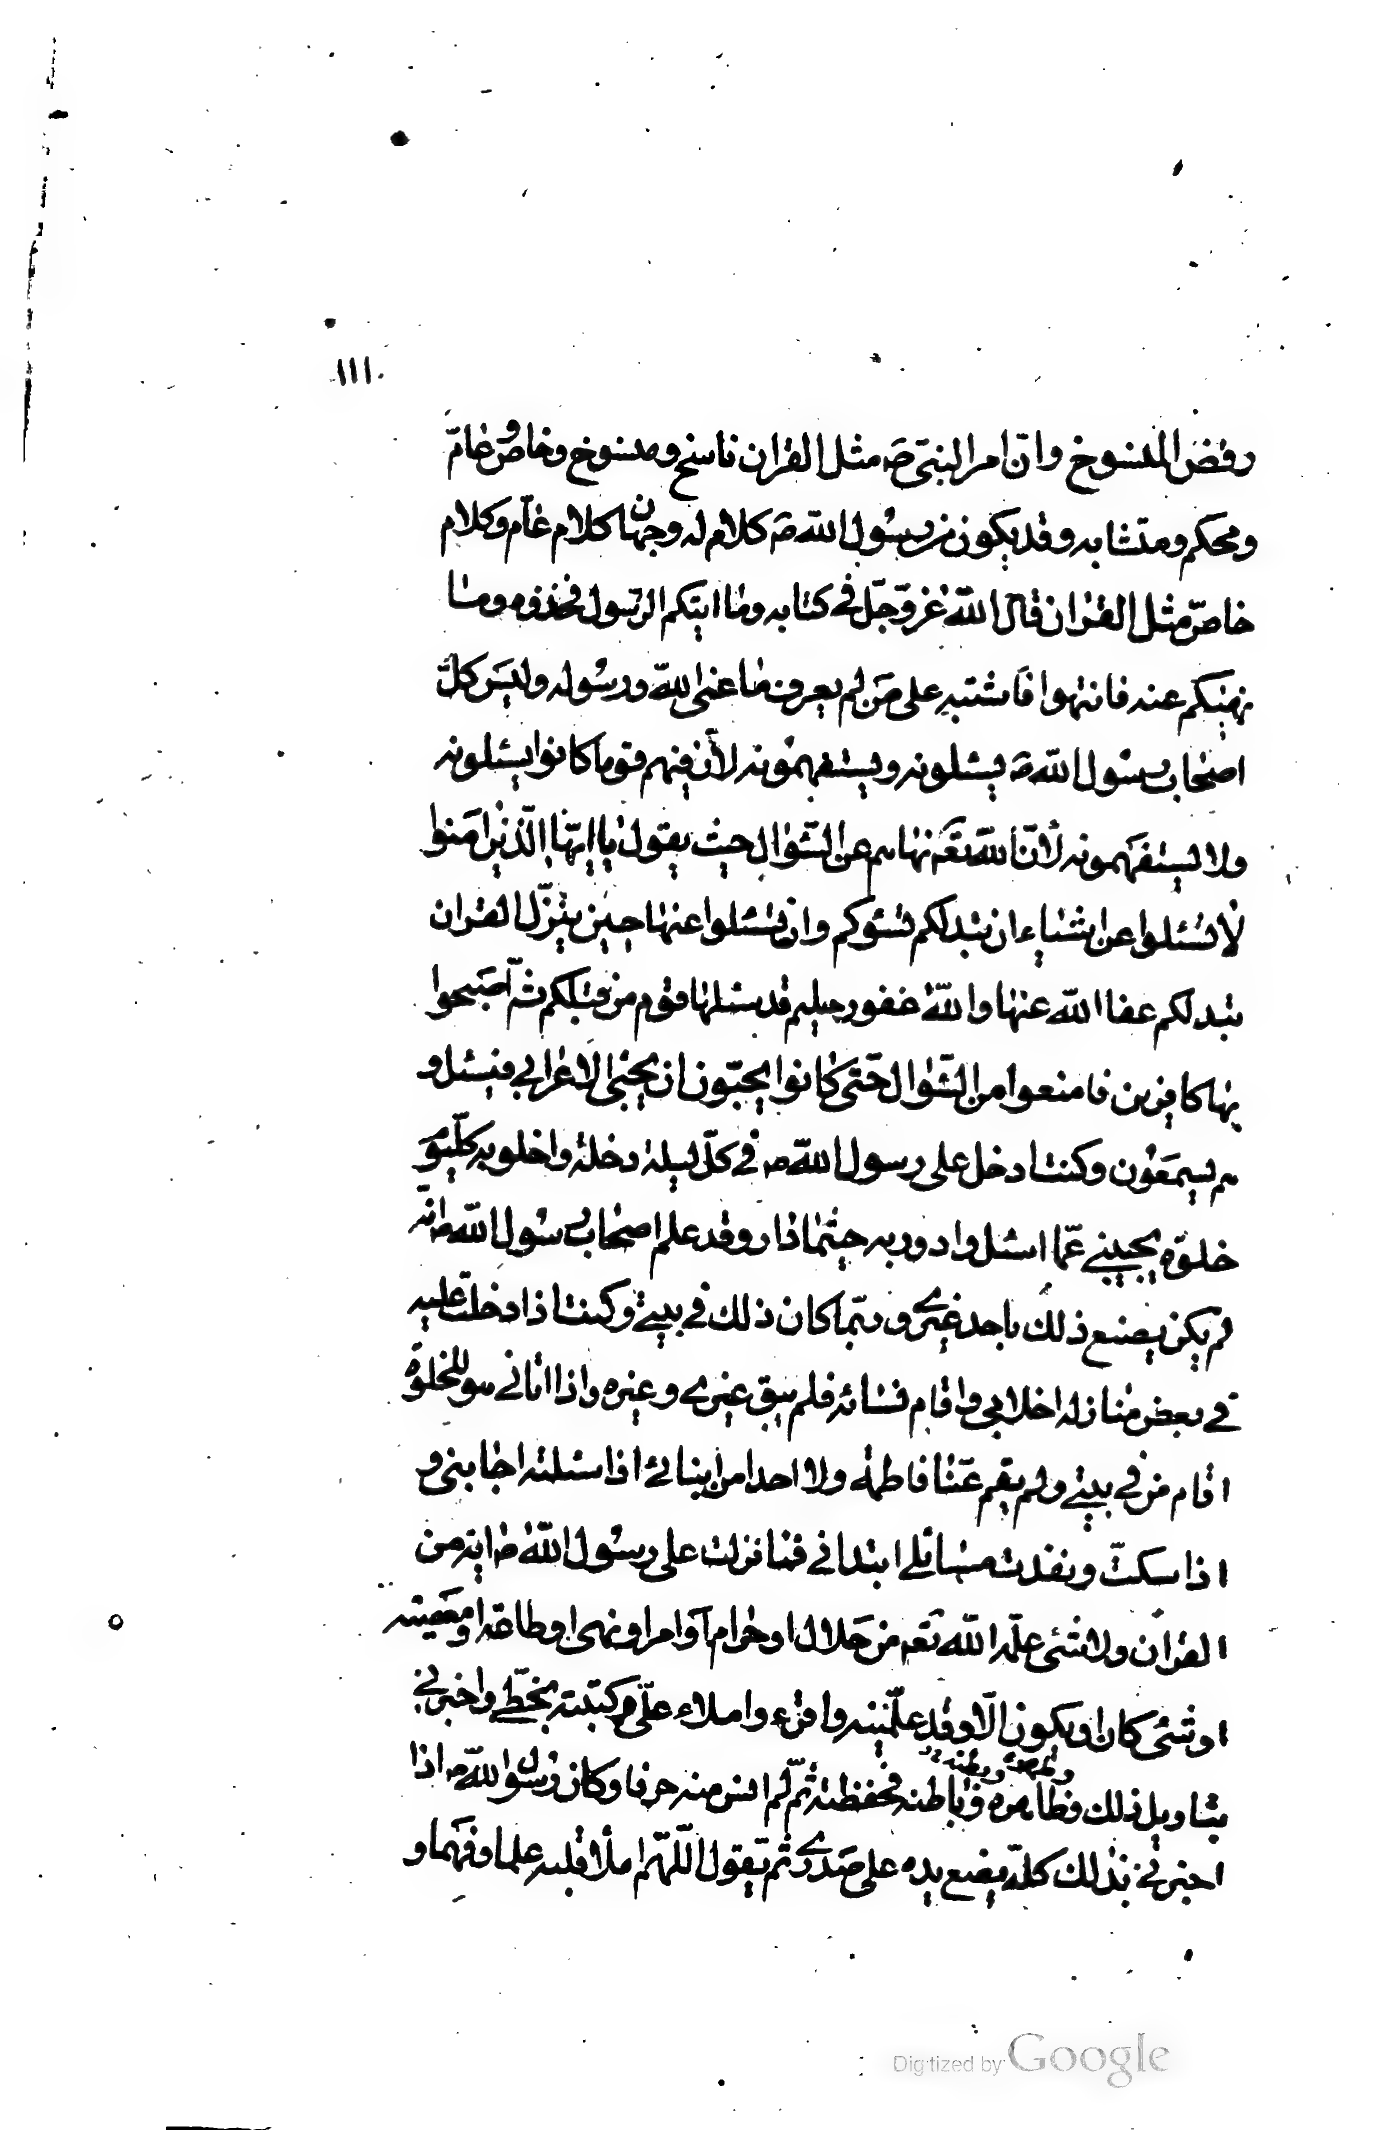 ١١١
رفض المنسوخ وانّ امر النبيّ صَ مثل القرآن ناسخ ومنسوخ وخاصّ و عامّ
ومحكم ومتشابه وقد يكون من رسول اللّه صَ كلام له وجهان كلام عامّ وكلام
خاصّ مثل القرآن قال اللّه عزّوجلّ في كتابه وما اتيكم الرّسول فخذوه وما
نهيكم عنه فانتهوا فاشتبه على من لم يعرف ما عنى اللّه ورسوله وليس كلّ
اصحاب رسول اللّه صَ يسئلونه ويستفهمونه لأنّ فيهم قوما كانوا يسئلونه
ولا يستفهمونه لأنّ اللّه تعَ نهاهم عن السّؤال حيث يقول يا ايّها الّذين امنوا
لا تسئلوا عن اشياء ان تبد لكم تسؤكم وان تسئلوا عنها حين ينزّل القرآن
تبد لكم عفا اللّه عنها واللّه غفور حليم قد سئلها قوم من قبلكم ثمّ اصبحوا
بها كافرين فامنعوا من السّؤال حتّى كانوا يحبّون ان يجئ الاعرابي فيسئل و
هم يسمعون وكنت ادخل على رسول اللّه ص في كلّ ليلة دخلة واخلو به كلّ يوم
خلوة يجيبني عمّا اسئل وادور به حيثما دار وقد علم اصحاب رسول اللّه ص انّه
لم يكن يصنع ذلك باحد غيري وربّما كان ذلك في بيتي وكنت اذا دخلت عليه
في بعض منازله اخلا بي واقام نسائه فلم يبق غيري وغيره واذا اتاني هو للخلوة
اقام من في بيتي ولم يقم عنّا فاطمة ولا احدا من ابنائي اذا سئلته اجابني و
اذا سكتّ ونفدت مسائلي ابتداني فما نزلت على رسول اللّه ص اية من
القرآن ولا شئ علّمه اللّه تعَ من حلال او حرام او امر او نهى او طاعة او معصية
او شئ كان او يكون الّا وقد علّمنيه واقرءه واملاه علىّ وكتبته بخطّي واخبرني
وظهره وبطنه
بتاويل ذلك وظاهره وباطنه فحفظته ثمّ لم انس منه حرفا وكان رسول اللّه ص اذا
اخبرني بذلك كلّه يضع يده على صدري ثمّ يقول اللّهمّ املأ قلبه علما وفهما و
Digitized by Google